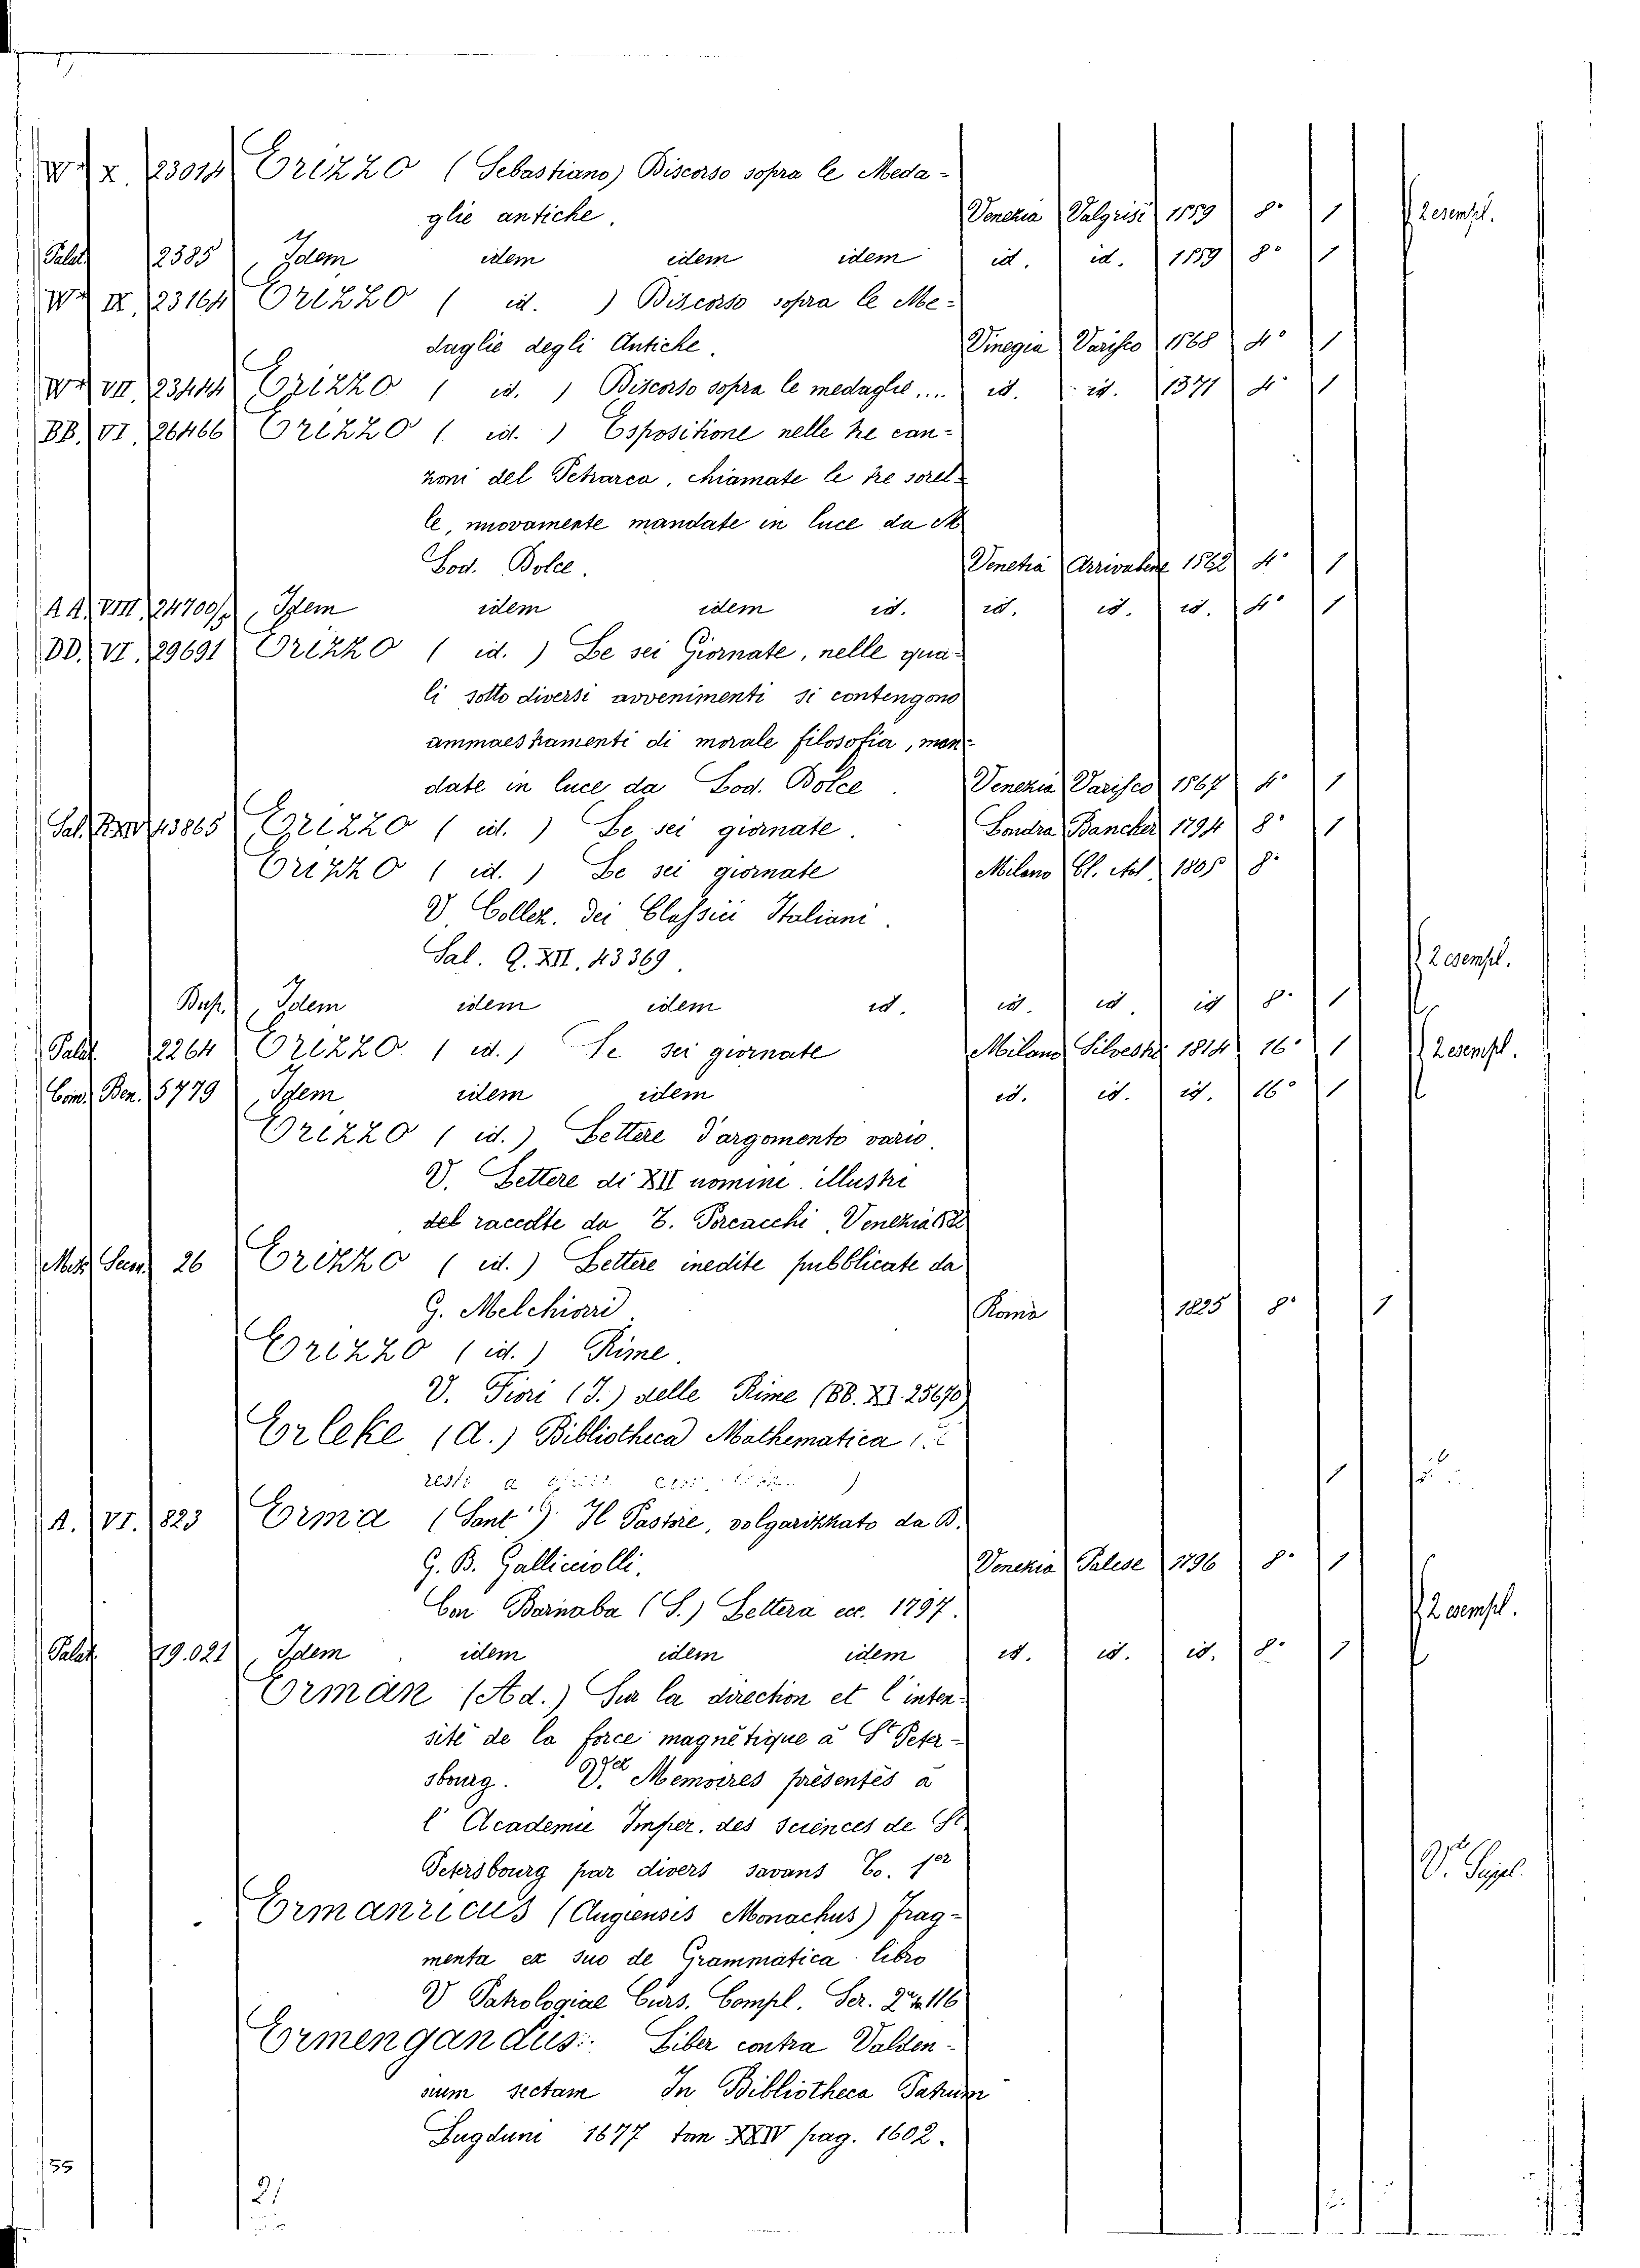 W X. 23014 Erizzo (Sebastiano) Discorso sopra le Meda-
glie antiche. Venezia Valgrisi 1559 8° 1 2 esempl.
Palat. 12385 „ Idem idem idem idem id. id. 1559 8° 1
W IX. 23164 Erizzo ( id. ) Discorso sopra le Me-
daglie degli Antiche. Vinegia Varisco 1568 4° 1
W VII. 23444 Erizzo ( id. ) Discorso sopra le medaglie.... id. id. 1571 4° 1
BB. VI. 26466 Erizzo ( id. ) Espositione nelle tre can-
zoni del Petrarca, chiamate le tre sorel-
le, nuovamente mandate in luce da M
Lod. Dolce. Venetia Arrivabene 1562 4° 1
AA. VIII. 24700/2 „ Idem idem idem id. id. id. id. 4° 1
DD. VI. 29691 Erizzo ( id. ) Le sei Giornate, nelle qua-
li sotto diversi avvenimenti si contengono
ammaestramenti di morale filosofia, man-
date in luce da Lod. Dolce. Venezia Varisco 1567 4° 1
Sal. 43865 Erizzo ( id. ) Le sei giornate. Londra Bancker 1794 8° 1
Erizzo ( id. ) Le sei giornate Milano Cl. 1805 8°
V. Collez. dei Classici Italiani.
Sal. Q. XII. 43369. 2 esempl.
„ Idem idem idem id. id. id. id 8° 1
Palat. 12264 Erizzo ( id. ) Le sei giornate Milano Silvestri 1814 16° 1 2 esempl.
Com. Ben. 5779 „ Idem idem idem id. id. id. 16° 1
Erizzo ( id. ) Lettere d'argomento vario.
V. Lettere di XII uomini illustri
del raccolte da T. Porcacchi, Venezia
26 Erizzo ( id. ) Lettere inedite pubblicate da
G. Melchiorri Roma 1825 8° 1
Erizzo ( id. ) Rime.
V. Fiori (I.) delle Rime (BB. XI. 25670)
Erleke (A.) Bibliotheca Mathematica
1
A. VI. 823 Erma (Sant') Il Pastore, volgarizzato da B.
G. B. Gallicciolli. Venezia Palese 1796 8° 1
Con Barnaba (S.) Lettera ecc. 1797. 2 esempl.
Palat. 19.021 „ Idem idem idem idem id. id. id. 8° 1
Erman (Ad.) Sur la direction et l'inten-
sité de la force magnétique à St Peter-
sbourg. V. Memoires présentés à
l'Academie Imper. des sciences de St
Petersbourg par divers savans To. 1er V. Suppl.
Ermanricus (Augiensis Monachus) Frag-
menta ex suo de Grammatica libro
V Patrologiae Curs. Compl. Ser. 2a t. 116
Ermengandus: Liber contra Valden-
sium sectam In Bibliotheca Patrum
Lugduni 1677 tom XXIV pag. 1602.
55
21